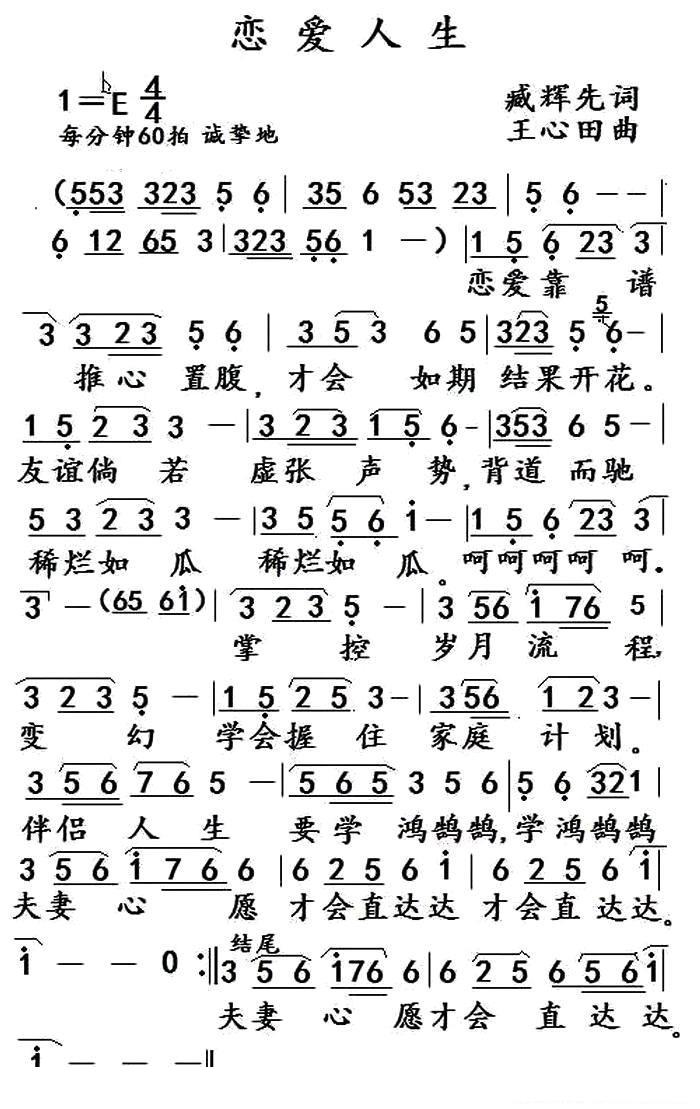 恋爱人生
1=♭E 4/4
臧辉先词
每分钟60拍 诚挚地
王心田曲
(553 323 5 6 | 35 6 53 23 | 5 6 - - |
6 12 65 3 | 323 56 1 - ) | 1 5 6 23 3 |
恋爱靠 谱
3 3 23 5 6 | 3 5 3 6 5 | 323 5 5 6 - |
推心 置腹，才会 如期 结果开花。
1 5 2 3 3 - | 3 2 3 1 5 6 - | 353 6 5 - |
友谊倘 若 虚张 声 势，背道 而驰
5 3 2 3 3 - | 3 5 5 6 i - | 1 5 6 23 3 |
稀烂如 瓜 稀烂如 瓜。呵呵呵呵 呵.
3 - (65 6i) | 3 2 3 5 - | 3 56 i 76 5 |
掌 控 岁月 流 程，
3 2 3 5 - | 1 5 2 5 3 - | 356 1 2 3 - |
变 幻 学会握 住 家庭 计 划。
3 5 6 7 6 5 - | 5 6 5 3 5 6 | 5 6 321 |
伴侣 人 生 要学 鸿鹄鹄，学鸿鹄鹄
3 5 6 i 7 6 6 | 6 2 5 6 i | 6 2 5 6 i |
夫妻 心 愿 才会直达达 才会直 达达。
i - - 0 :||
结尾
3 5 6 i76 6 | 6 2 5 6 5 6 i |
夫妻 心 愿才会 直 达 达。
i - - - ||